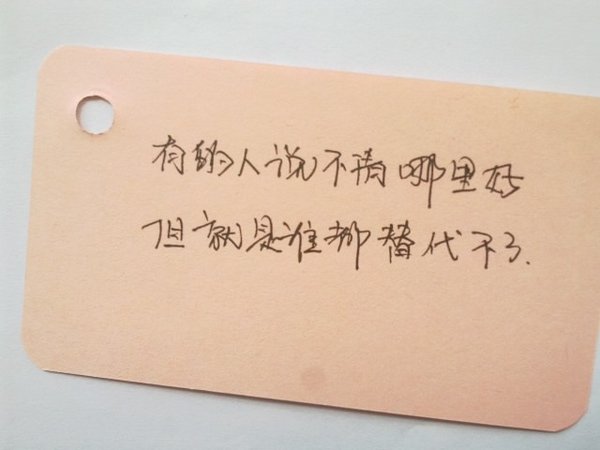 有的人说不清哪里好
但就是谁都替代不了.